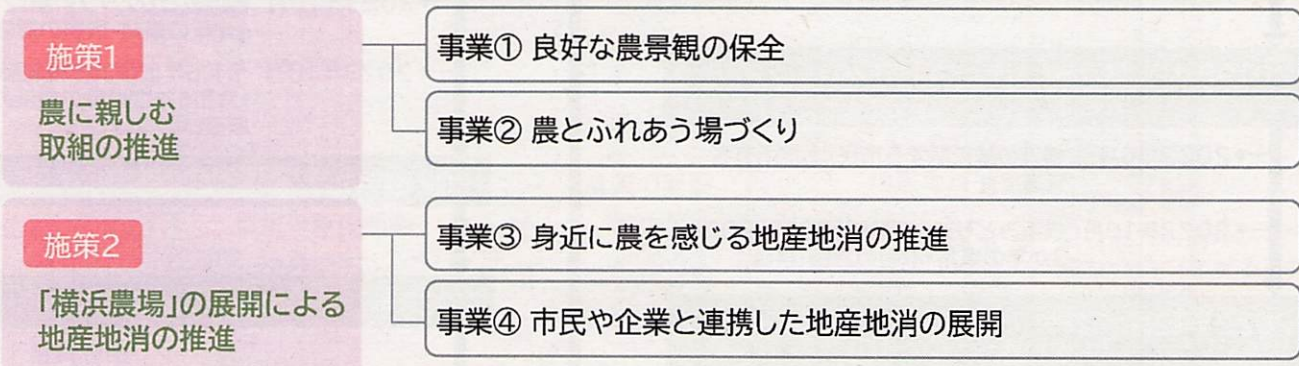 施策1
農に親しむ
取組の推進
事業① 良好な農景観の保全
事業② 農とふれあう場づくり
施策2
「横浜農場」の展開による
地産地消の推進
事業③ 身近に農を感じる地産地消の推進
事業④ 市民や企業と連携した地産地消の展開